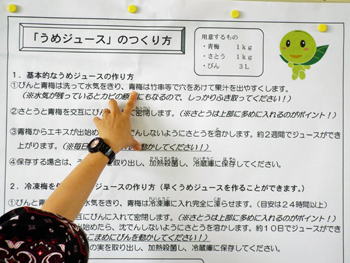 「うめジュース」のつくり方
用意するもの
・青梅 1kg
・さとう 1kg
・びん 3L
1．基本的なうめジュースの作り方
①びんと青梅は洗って水気をきり、青梅は竹串等で穴をあけて果汁を出やすくします。
(※水気が残っているとカビの原因にもなるので、しっかりふき取ってください！)
②さとうと青梅を交互にびんに入れて密閉します。(※さとうは上部に多めに入れるのがポイント！)
③青梅からエキスが出始め
でんしないようにさとうを溶かします。約2週間でジュースができ
上がります。(※毎日
動かしてください！)
④保存する場合は、う
し、加熱殺菌し、冷蔵庫に保存してください。
2．冷凍梅を
ジュースの作り方（早くうめジュースを作ることができます。）
①びんと青
、青梅は冷凍庫に入れ完全に凍らせます。（目安は24時間以上）
びんに入れて密閉します。(※さとうは上部に多めに入れるのがポイント！)
始めたら、沈でんしないようにさとうを溶かします。約10日でジュースができ
にまめにびんを動かしてください！)
の実を取り出し、加熱殺菌し、冷蔵庫に保存してください。